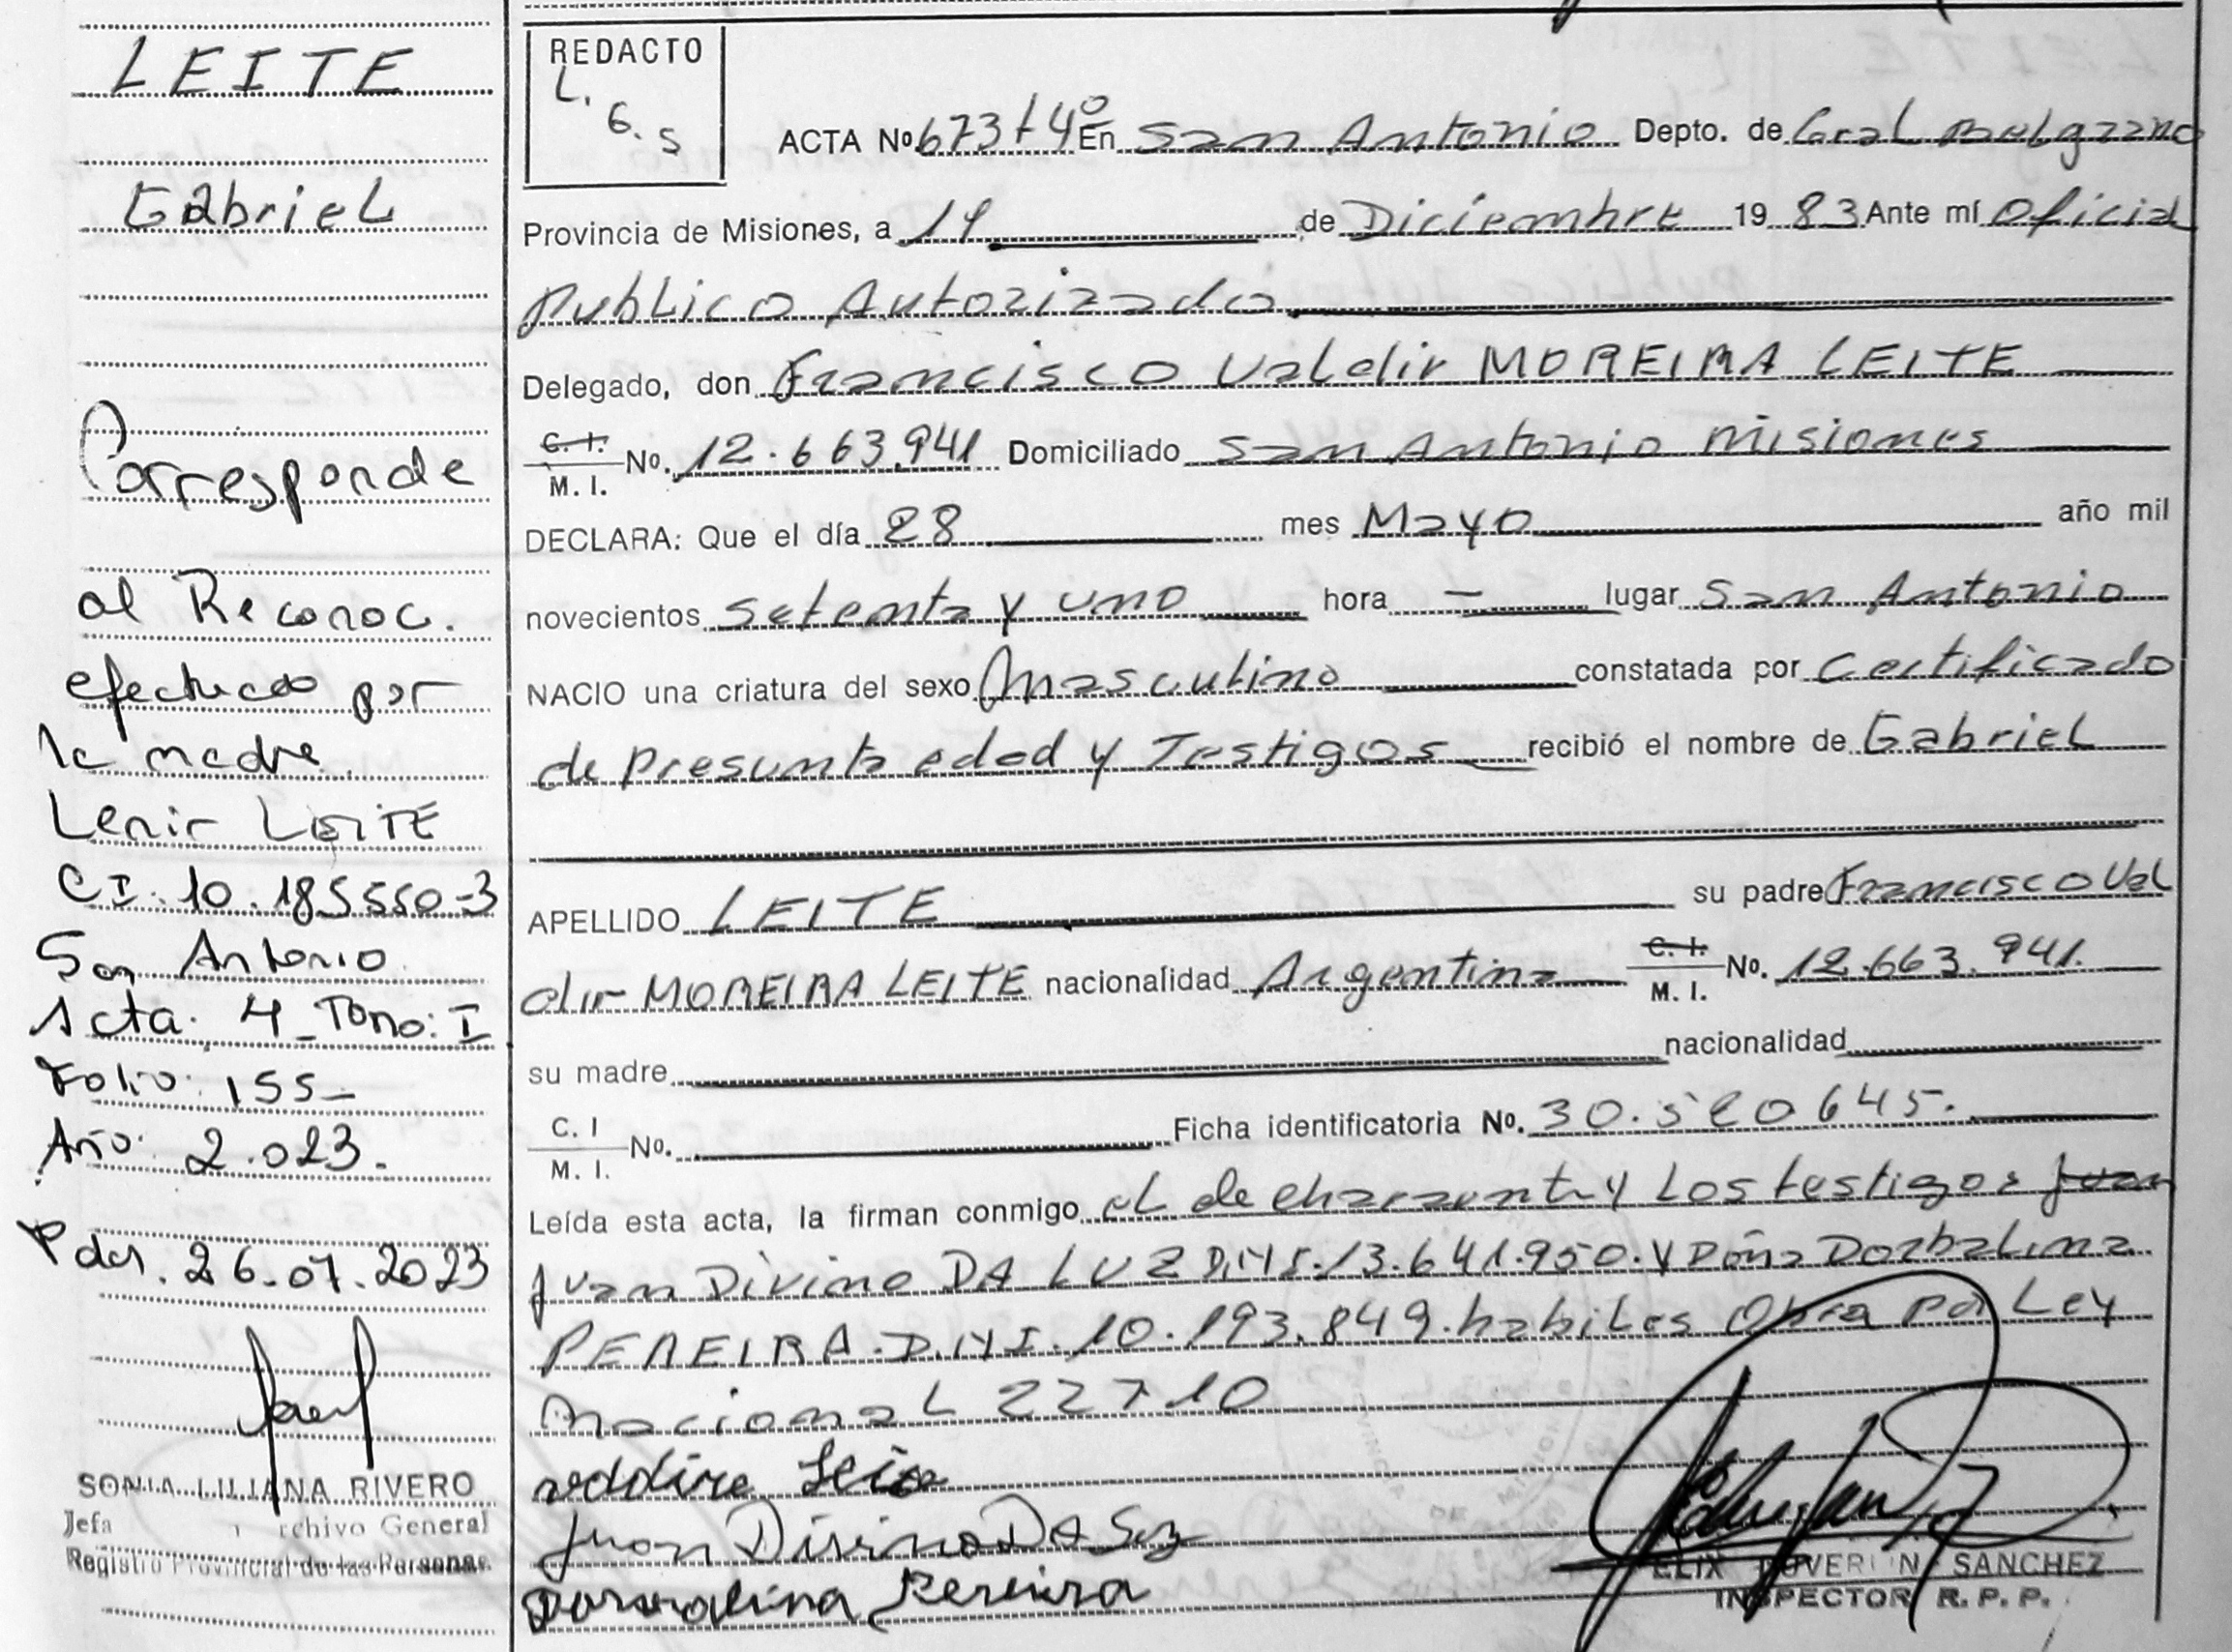 LEITE
Gabriel
Corresponde
al Reconoc.
efectuado por
la madre
Lenir LEITE
CI. 10.185550-3
San Antonio
Acta: 4 Tomo: I
Folio: 155
Año: 2.023.
Pdas. 26-07-2023
SONIA LILIANA RIVERO
Jefa Archivo General
Registro Provincial de las Personas
REDACTO
L.
G. S
ACTA Nº 673 t 4º En San Antonio Depto. de Gral Belgrano
Provincia de Misiones, a 14 de Diciembre 19 83 Ante mí Oficial
Publico Autorizado
Delegado, don Francisco Valdir MOREIRA LEITE
C. I. M. I. No. 12.663.941 Domiciliado San Antonio Misiones
DECLARA: Que el día 28 mes Mayo año mil
novecientos setenta y uno hora — lugar San Antonio
NACIO una criatura del sexo Masculino constatada por Certificado
de Presunta edad y Testigos recibió el nombre de Gabriel
APELLIDO LEITE su padre Francisco Val
dir MOREIRA LEITE nacionalidad Argentina C. I. M. I. No. 12.663.941.
su madre nacionalidad
C. I M. I. No. Ficha identificatoria No. 30.520645.
Leída esta acta, la firman conmigo el declarante y Los testigos Juan
Juan Divino DA LUZ D.N.I. 13.641.950. y Doña Dorbalina
PEREIRA. D.N.I. 10.193.849. habiles Obra por Ley
Nacional 22710
Juan Divino DA Luz
Dorvalina Pereira
FELIX SANCHEZ
INSPECTOR R. P. P.